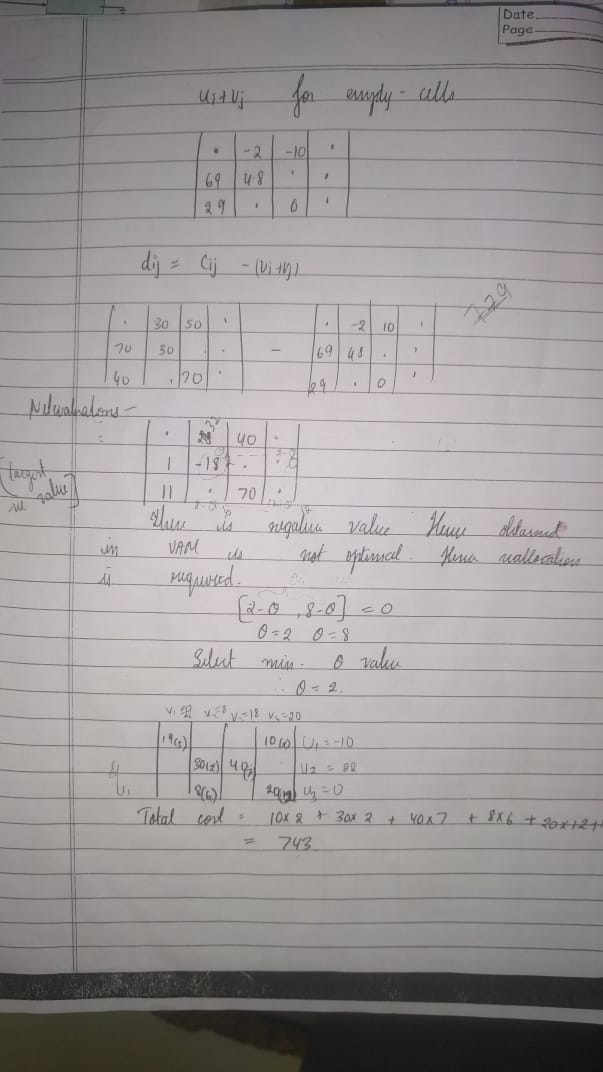 Date
Page
Ui+Vj for empty-cells
• -2 -10 •
69 48 • •
29 • 0 •
dij = Cij - (Ui+Vj)
729
• 30 50 • • -2 10 •
70 30 • • - 69 48 • •
40 • 70 • 29 • 0 •
=
• 40 •
1 -18 • •
11 • 70 •
There is negative value Hence obtained
in VAM is not optimal. Hence reallocation
is required.
[2-θ , 8-θ] = 0
θ=2 θ=8
Select min. θ value
∴ θ=2.
V₃=18 V₄=20
19(5) 10(2) U₁=-10
30(2) 40(7) U₂ = 22
8(6) 20(12) U₃=0
Total cost = 10x2 + 30x2 + 40x7 + 8x6 + 20x12+
= 743